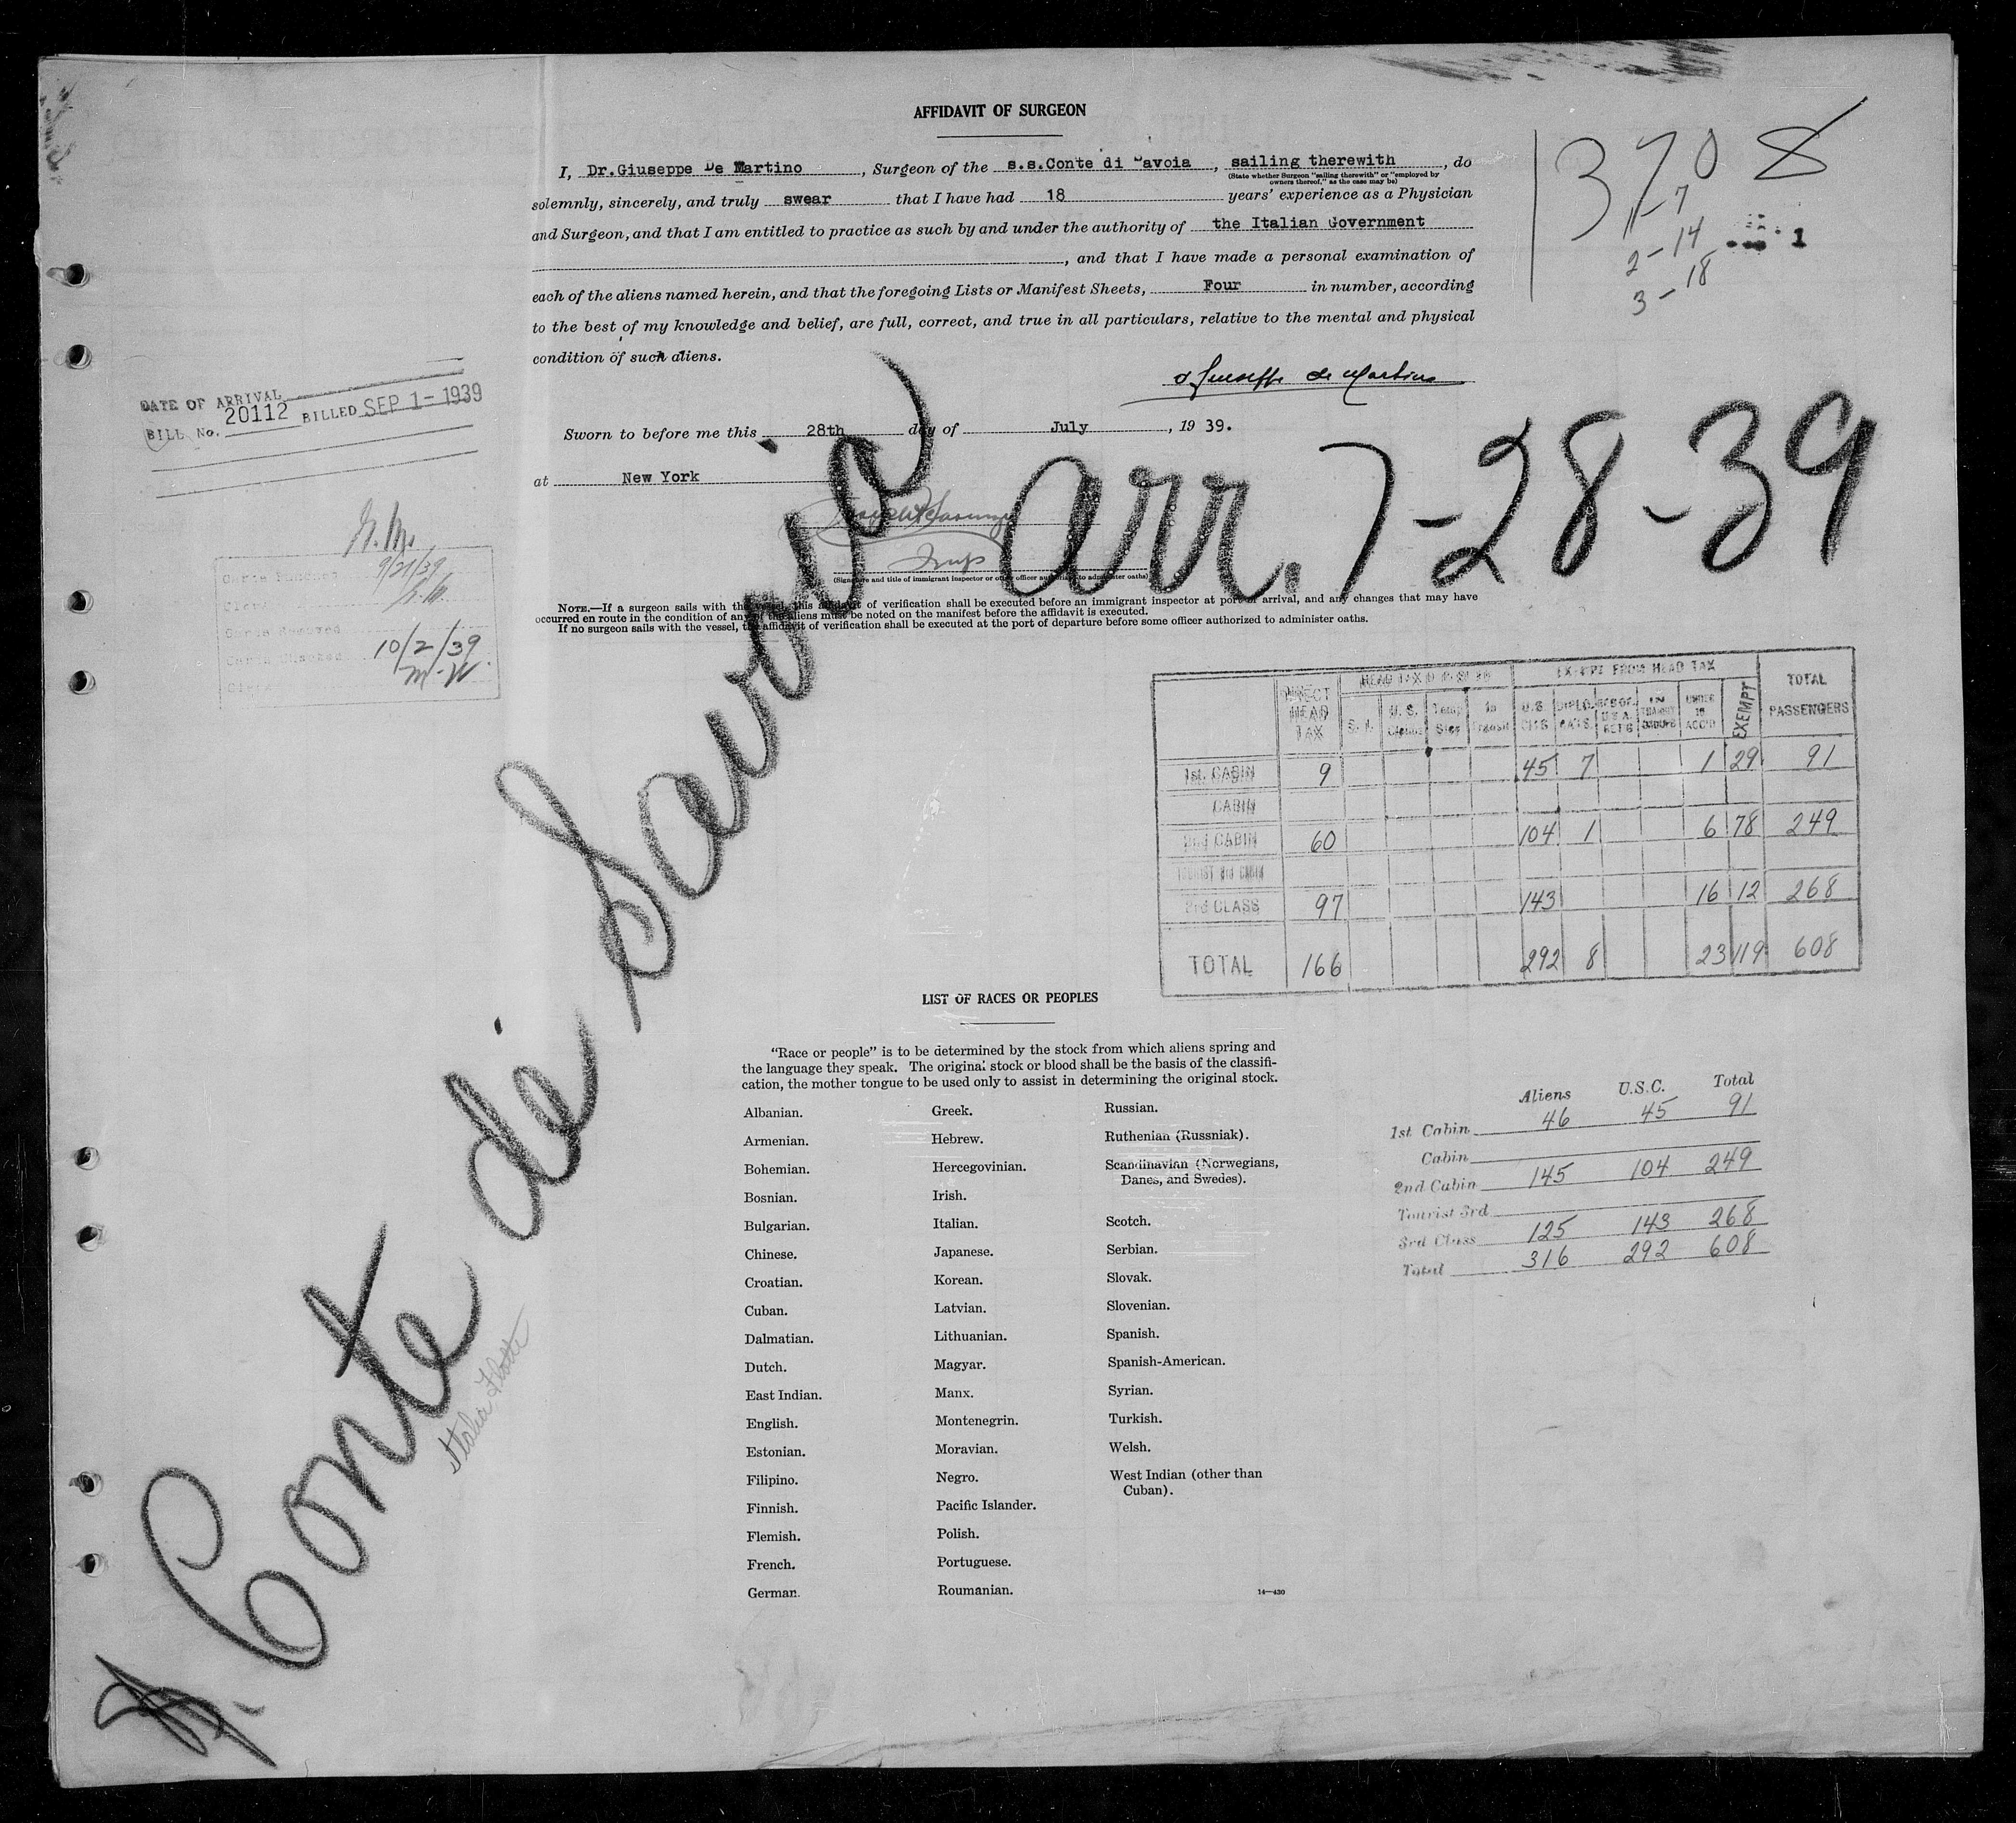 AFFIDAVIT OF SURGEON
I, Dr.Giuseppe De Martino, Surgeon of the s.s.Conte di Savoia, sailing therewith, do
(State whether Surgeon "sailing therewith" or "employed by
owners thereof," as the case may be)
solemnly, sincerely, and truly swear that I have had 18 years' experience as a Physician
and Surgeon, and that I am entitled to practice as such by and under the authority of the Italian Government
, and that I have made a personal examination of
each of the aliens named herein, and that the foregoing Lists or Manifest Sheets, Four in number, according
to the best of my knowledge and belief, are full, correct, and true in all particulars, relative to the mental and physical
condition of such aliens.
Giuseppe de Martino
Sworn to before me this 28th day of July, 19 39.
at New York
Insp
(Signature and title of immigrant inspector or other officer authorized to administer oaths)
NOTE.—If a surgeon sails with the vessel, this affidavit of verification shall be executed before an immigrant inspector at port of arrival, and any changes that may have
occurred en route in the condition of any of the aliens must be noted on the manifest before the affidavit is executed.
If no surgeon sails with the vessel, the affidavit of verification shall be executed at the port of departure before some officer authorized to administer oaths.
3708
1-7
2-14
3-18
1
DATE OF ARRIVAL
BILL No. 20112 BILLED SEP 1-1939
9/21/39
10/2/39
M.W.
Conte di Savoia arr. 7-28-39
DIRECT HEAD TAX EXEMPT FROM HEAD TAX TOTAL PASSENGERS
U.S. CITS. DIPLOMATS UNDER 16 ACC'D EXEMPT
1st. CABIN 9 45 7 1 29 91
CABIN
2nd CABIN 60 104 1 6 78 249
TOURIST 3rd CABIN
3rd CLASS 97 143 16 12 268
TOTAL 166 292 8 23 119 608
LIST OF RACES OR PEOPLES
"Race or people" is to be determined by the stock from which aliens spring and
the language they speak. The original stock or blood shall be the basis of the classifi-
cation, the mother tongue to be used only to assist in determining the original stock.
Albanian.
Armenian.
Bohemian.
Bosnian.
Bulgarian.
Chinese.
Croatian.
Cuban.
Dalmatian.
Dutch.
East Indian.
English.
Estonian.
Filipino.
Finnish.
Flemish.
French.
German.
Greek.
Hebrew.
Hercegovinian.
Irish.
Italian.
Japanese.
Korean.
Latvian.
Lithuanian.
Magyar.
Manx.
Montenegrin.
Moravian.
Negro.
Pacific Islander.
Polish.
Portuguese.
Roumanian.
Russian.
Ruthenian (Russniak).
Scandinavian (Norwegians,
Danes, and Swedes).
Scotch.
Serbian.
Slovak.
Slovenian.
Spanish.
Spanish-American.
Syrian.
Turkish.
Welsh.
West Indian (other than
Cuban).
14—430
Aliens U.S.C. Total
1st Cabin 46 45 91
Cabin
2nd Cabin 145 104 249
Tourist 3rd
3rd Class 125 143 268
Total 316 292 608